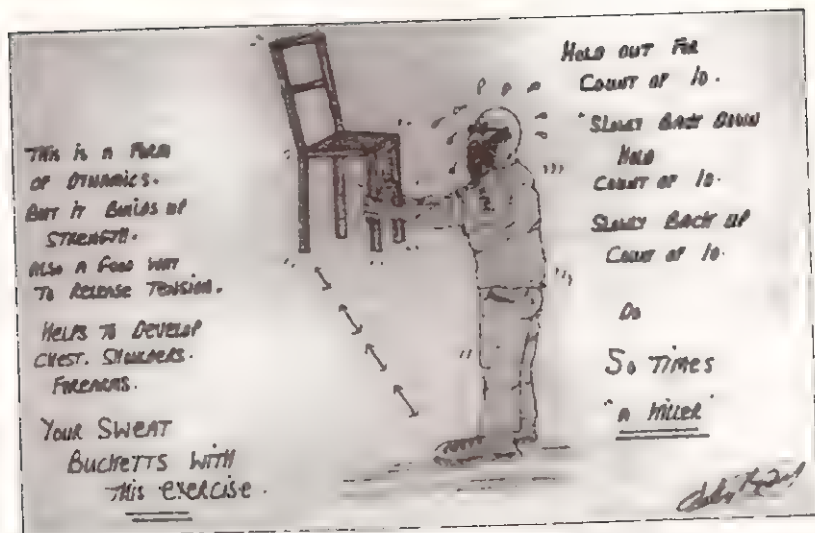 THIS IS A FORM
OF DYNAMICS.
BUT IT BUILDS UP
STRENGTH.
ALSO A GOOD WAY
TO RELEASE TENSION.
HELPS TO DEVELOP
CHEST. SHOULDERS.
FOREARMS.
YOUR SWEAT
BUCKETTS WITH
THIS EXERCISE.
HOLD OUT FOR
COUNT OF 10.
SLOWLY BACK DOWN
HOLD
COUNT OF 10.
SLOWLY BACK UP
COUNT OF 10.
DO
50 TIMES
"A KILLER"